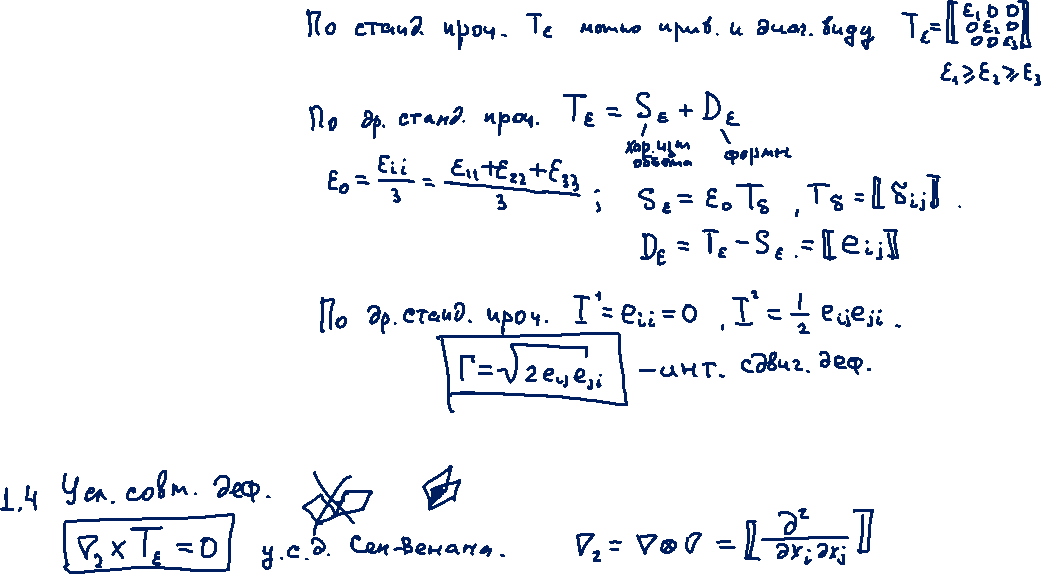 По станд проч. Tε можно прив. к диаг. виду Tε = [[ε₁ 0 0
0 ε₂ 0
0 0 ε₃]]
ε₁ ≥ ε₂ ≥ ε₃
По др. станд. проч. Tε = Sε + Dε
хар. изм объёма формы
ε₀ = εii/3 = (ε₁₁+ε₂₂+ε₃₃)/3 ; Sε = ε₀ Tδ , Tδ = [[δij]] .
Dε = Tε − Sε . = [[eij]]
По др. станд. проч. I¹ = eii = 0 , I² = 1/2 eij eji .
Γ = √(2 eij eji) – инт. сдвиг. деф.
1.4 Усл. совм. деф.
∇₂ × Tε = 0 у.с.д. Сен-Венана. ∇₂ = ∇⊗∇ = [[∂²/∂xi ∂xj]]